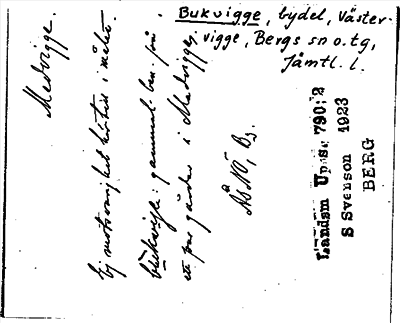 Bukvigge, bydel, Väster-
vigge, Bergs sn o. tg,
Jämtl. l.
Medvigge.
Ej motsvarighet hörtes i målet.
gammal ben. på
ett par gårdar i Medvigge,
ÅsNÖ, Bg.
Landsm Upps. 790:2
S Svenson 1923
BERG